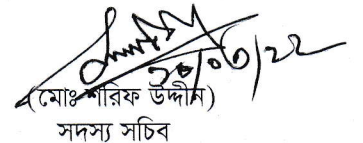 ২০/০৩/২২
(মোঃ শরিফ উদ্দীন)
সদস্য সচিব